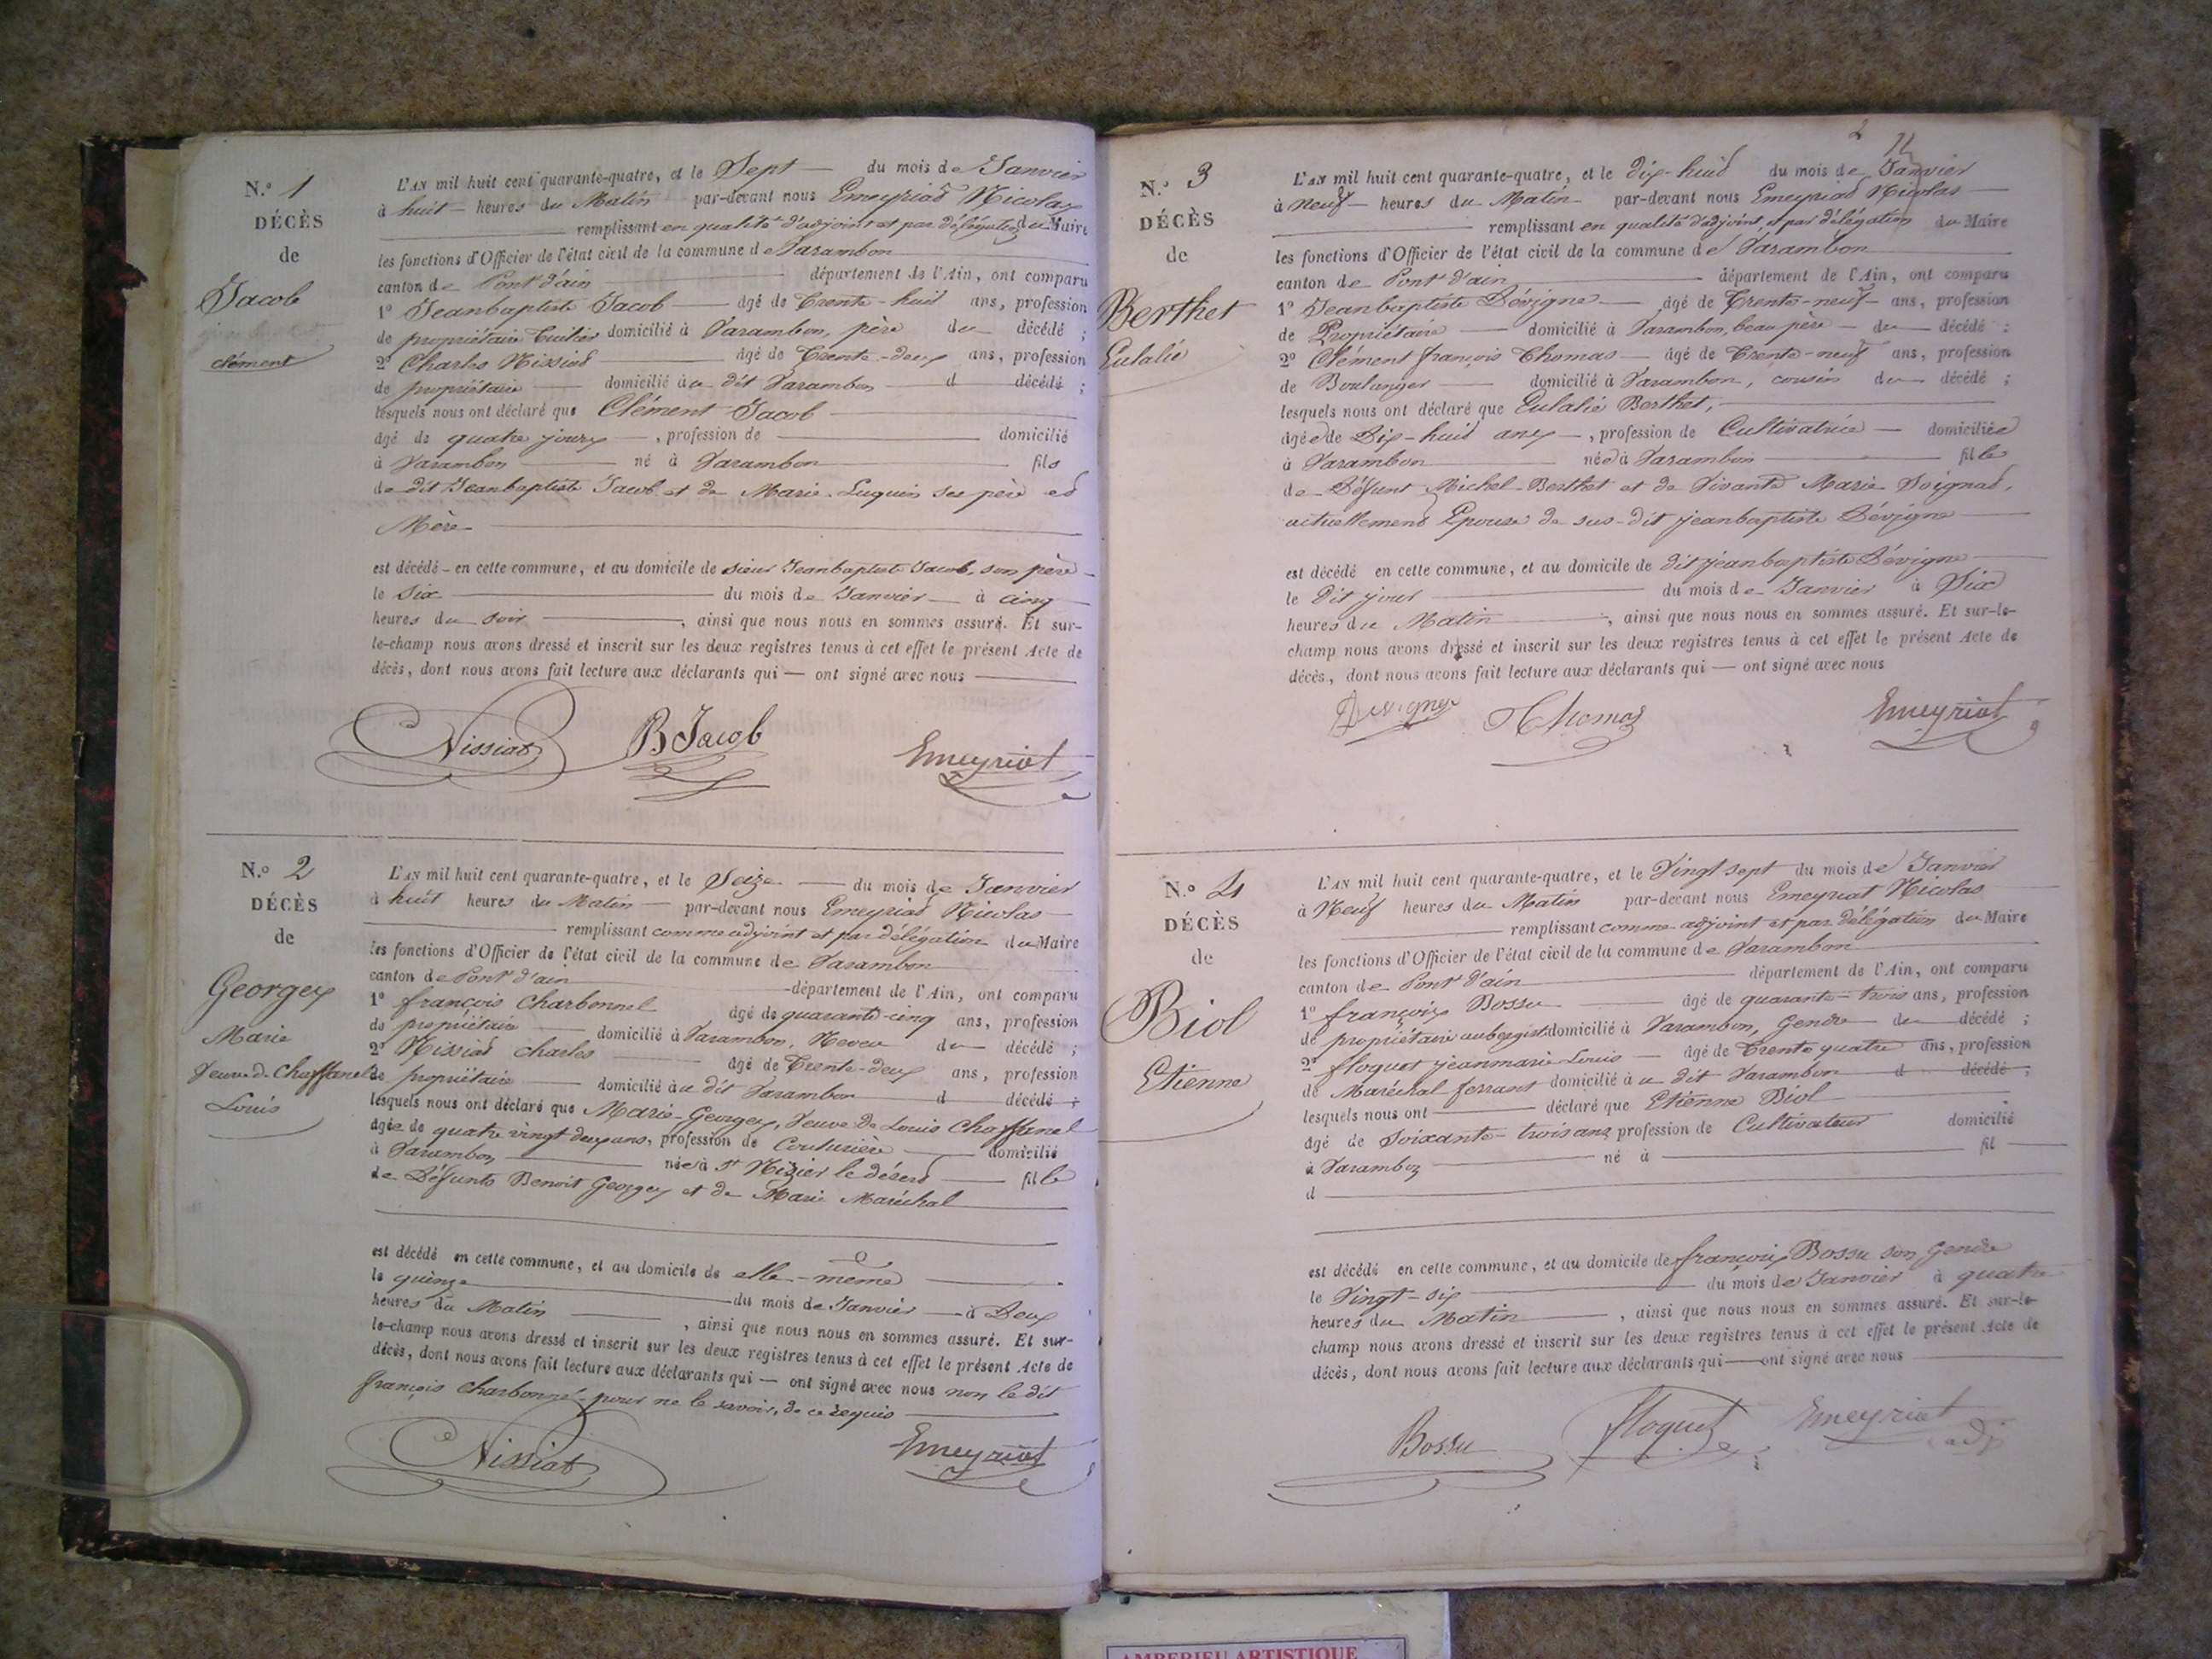 N.º 1
DÉCÈS
de
Jacob
clément
L'AN mil huit cent quarante-quatre, et le Sept du mois de Janvier
à huit heures du Matin par-devant nous Emeyriat Nicolas
remplissant en qualité d'adjoint et par délégation du Maire
les fonctions d'Officier de l'état civil de la commune de Varambon
canton de Pont d'ain département de l'Ain, ont comparu
1º Jeanbaptiste Jacob âgé de Trente-huit ans, profession
de propriétaire Tuilier domicilié à Varambon, père du décédé ;
2º Charles Nissiat âgé de Trente-deux ans, profession
de propriétaire domicilié au dit Varambon d décédé ;
lesquels nous ont déclaré que Clément Jacob
âgé de quatre jours, profession de domicilié
à Varambon né à Varambon fils
de dit Jeanbaptiste Jacob et de Marie Luquin ses père et
Mère
est décédé en cette commune, et au domicile de sieur Jeanbaptiste Jacob, son père
le Six du mois de Janvier à cinq
heures du soir, ainsi que nous nous en sommes assuré. Et sur-
le-champ nous avons dressé et inscrit sur les deux registres tenus à cet effet le présent Acte de
décès, dont nous avons fait lecture aux déclarants qui — ont signé avec nous
Nissiat B Jacob Emeyriat
N.º 2
DÉCÈS
de
Georges
Marie
Veuve de Chaffanel
Louis
L'AN mil huit cent quarante-quatre, et le Seize du mois de Janvier
à huit heures du Matin par-devant nous Emeyriat Nicolas
remplissant comme adjoint et par délégation du Maire
les fonctions d'Officier de l'état civil de la commune de Varambon
canton de Pont d'ain département de l'Ain, ont comparu
1º françois Charbonnel âgé de quarante-cinq ans, profession
de propriétaire domicilié à Varambon, Neveu du décédé ;
2º Nissiat charles âgé de Trente-deux ans, profession
de propriétaire domicilié au dit Varambon d décédé ;
lesquels nous ont déclaré que Marie Georges, Veuve de Louis Chaffanel
âgée de quatre vingt deux ans, profession de Couturière domicilié
à Varambon née à St Nizier le désert fille
de Défunts Benoit Georges et de Marie Maréchal
est décédé en cette commune, et au domicile de elle-même
le quinze du mois de Janvier à Deux
heures du Matin, ainsi que nous nous en sommes assuré. Et sur-
le-champ nous avons dressé et inscrit sur les deux registres tenus à cet effet le présent Acte de
décès, dont nous avons fait lecture aux déclarants qui — ont signé avec nous non le dit
françois Charbonnel pour ne le savoir, de ce requis
Nissiat Emeyriat
2
N.º 3
DÉCÈS
de
Berthet
Eulalie
L'AN mil huit cent quarante-quatre, et le Dix-huit du mois de Janvier
à Neuf heures du Matin par-devant nous Emeyriat Nicolas
remplissant en qualité d'adjoint, et par délégation du Maire
les fonctions d'Officier de l'état civil de la commune de Varambon
canton de Pont d'ain département de l'Ain, ont comparu
1º Jeanbaptiste Dévigne âgé de Trente-neuf ans, profession
de Propriétaire domicilié à Varambon, beau père du décédé ;
2º Clément françois Thomas âgé de Trente-neuf ans, profession
de Boulanger domicilié à Varambon, cousin du décédé ;
lesquels nous ont déclaré que Eulalie Berthet,
âgée de Dix-huit ans, profession de Cultivatrice domiciliée
à Varambon née à Varambon fille
de Défunt Michel Berthet et de Vivante Marie Soignat,
actuellement Epouse de sus-dit jeanbaptiste Dévigne
est décédé en cette commune, et au domicile de dit jeanbaptiste Dévigne
le Dit jour du mois de Janvier à Six
heures du Matin, ainsi que nous nous en sommes assuré. Et sur-le-
champ nous avons dressé et inscrit sur les deux registres tenus à cet effet le présent Acte de
décès, dont nous avons fait lecture aux déclarants qui — ont signé avec nous
Devigne Thomas Emeyriat
N.º 4
DÉCÈS
de
Biol
Etienne
L'AN mil huit cent quarante-quatre, et le Vingt sept du mois de Janvier
à Neuf heures du Matin par-devant nous Emeyriat Nicolas
remplissant comme adjoint et par délégation du Maire
les fonctions d'Officier de l'état civil de la commune de Varambon
canton de Pont d'ain département de l'Ain, ont comparu
1º françois Bossu âgé de quarante-trois ans, profession
de propriétaire aubergiste domicilié à Varambon, Gendre du décédé ;
2º floquet jeanmarie Louis âgé de Trente quatre ans, profession
de Maréchal ferrant domicilié au dit Varambon d décédé ;
lesquels nous ont déclaré que Etienne Biol
âgé de Soixante-trois ans profession de Cultivateur domicilié
à Varambon né à fil
d
est décédé en cette commune, et au domicile de françois Bossu son Gendre
le Vingt-six du mois de Janvier à quatre
heures du Matin, ainsi que nous nous en sommes assuré. Et sur-le-
champ nous avons dressé et inscrit sur les deux registres tenus à cet effet le présent Acte de
décès, dont nous avons fait lecture aux déclarants qui — ont signé avec nous
Bossu floquet Emeyriat
adj
AMBERIEU ARTISTIQUE